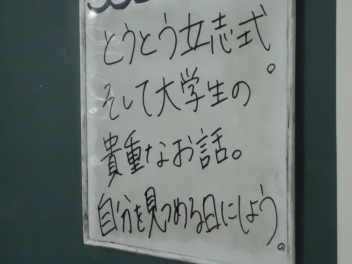 とうとう立志式。
そして大学生の
貴重なお話。
自分を見つめる日にしよう。